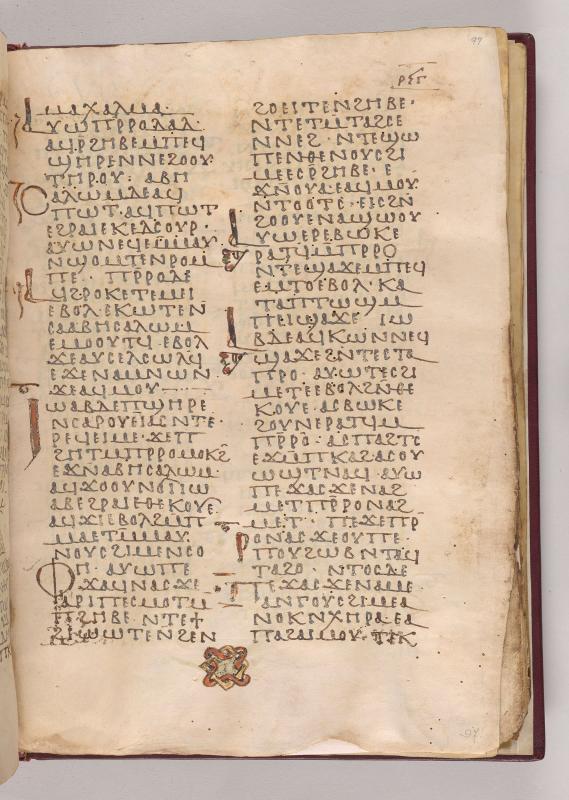 ⲣϟⲅ
97
ⲙⲁⲭⲁⲗⲙⲁ·
ⲩⲱⲡⲣⲣⲟⲇⲁⲗ·
ⲁϥⲣϩⲏⲃⲉⲙⲡⲉϥ
ϣⲏⲣⲉⲛⲛⲉϩⲟⲟⲩ
ⲧⲏⲣⲟⲩ: ⲁⲃⲏ
ⲥⲁⲗⲱⲙⲇⲉⲁϥ
ⲡⲱⲧ·ⲁϥⲡⲱⲧ
ⲉϩⲣⲁⲓⲉⲕⲉⲇⲥⲟⲩⲣ·
ⲁⲩⲱⲛⲉϥⲙⲙⲁⲩ
ⲛϣⲟⲙⲧⲉⲛⲣⲟⲙ
ⲡⲉ· ⲡⲣⲣⲟⲇⲉ
ⲁϥϩⲣⲟⲕⲉⲧⲙⲉⲓ
ⲉⲃⲟⲗ·ⲉⲕⲱⲧⲉⲛ
ⲥⲁⲁⲃⲏⲥⲁⲗⲱⲙ
ⲉⲙⲟⲟⲩⲧϥ·ⲉⲃⲟⲗ
ϫⲉⲁⲩⲥⲉⲗⲥⲱⲗϥ
ⲉϫⲉⲛⲁⲙⲛⲱⲛ
ϫⲉⲁϥⲙⲟⲩ
ⲓⲱⲁⲃⲇⲉⲡϣⲏⲣⲉ
ⲛⲥⲁⲣⲟⲩⲉⲓⲁⲥⲛⲧⲉ
ⲣⲉϥⲉⲓⲙⲉ·ϫⲉⲡ
ϩⲏⲧⲙⲡⲣⲣⲟⲙⲟⲕϩ
ⲉϫⲛⲁⲃⲏⲥⲁⲗⲱⲙ·
ⲁϥϫⲟⲟⲩⲛϭⲓⲓⲱ
ⲁⲃⲉϩⲣⲁⲓⲉⲑⲉⲕⲟⲩⲉ·
ⲁϥϫⲓⲉⲃⲟⲗϩⲙⲡ
ⲙⲁⲉⲧⲙⲙⲁⲩ·
ⲛⲟⲩⲥϩⲓⲙⲉⲛⲥⲟ
ⲫⲏ·ⲁⲩⲱⲡⲉ
ϫⲁϥⲛⲁⲥϫⲉ
ⲁⲣⲓⲡⲉⲥⲙⲟⲧⲙ
ⲡϩⲏⲃⲉ·ⲛⲧⲉϯ
ϩⲓⲱⲱⲧⲉⲛϩⲉⲛ
ϩⲟⲉⲓⲧⲉⲛϩⲏⲃⲉ·
ⲛⲧⲉⲧⲙⲧⲁϩⲥⲉ
ⲛⲛⲉϩ·ⲛⲧⲉϣⲱ
ⲡⲉⲛⲑⲉⲛⲟⲩⲥϩⲓ
ⲙⲉⲉⲥⲣϩⲏⲃⲉ·ⲉ
ϫⲛⲟⲩⲁ·ⲉⲁϥⲙⲟⲩ
ⲛⲧⲟⲟⲧⲉ·ⲉⲓⲥϩⲛ
ϩⲟⲟⲩⲉⲛⲁϣⲱⲟⲩ
ⲩⲱⲉⲣⲉⲃⲱⲕⲉ
ⲣⲁⲧϥⲙⲡⲣⲣⲟ
ⲛⲧⲉϣⲁϫⲉⲙⲡⲉϥ
ⲉⲙⲧⲟⲉⲃⲟⲗ·ⲕⲁ
ⲧⲁⲡⲧⲱϣⲙ
ⲡⲉⲓϣⲁϫⲉ· ⲓⲱ
ⲃⲇⲉⲁϥⲕⲱⲛⲛⲉϥ
ϣⲁϫⲉϩⲛⲧⲉⲥⲧⲁ
ⲡⲣⲟ·ⲁⲩⲱⲧⲉⲥϩⲓ
ⲙⲉⲉⲃⲟⲗϩⲛⲑⲉ
ⲕⲟⲩⲉ·ⲁⲥⲃⲱⲕⲉ
ϩⲟⲩⲛⲉⲣⲁⲧϥⲙ
ⲡⲣⲣⲟ·ⲁⲥⲡⲁϩⲧⲥ
ⲉϫⲙⲡⲕⲁϩⲁⲥⲟⲩ
ⲱϣⲧⲛⲁϥ·ⲁⲩⲱ
ⲡⲉϫⲁⲥϫⲉⲛⲁϩ
ⲙⲉⲧⲡⲣⲣⲟⲛⲁϩ
ⲙⲉⲧ· ⲡⲉϫⲉⲡⲣ
ⲣⲟⲛⲁⲥϫⲉⲟⲩⲡⲉ·
ⲡⲟⲩϩⲱⲃⲛⲧⲁϥ
ⲧⲁϩⲟ·ⲛⲧⲟⲥⲇⲉ
ⲡⲉϫⲁⲥϫⲉⲛⲁⲙⲉ
ⲁⲛⲅⲟⲩⲥϩⲓⲙⲉⲁ
ⲛⲟⲕⲛⲭⲏⲣⲁ·ⲉⲁ
ⲡⲁϩⲁⲓⲙⲟⲩ·ⲧⲉⲕ
97